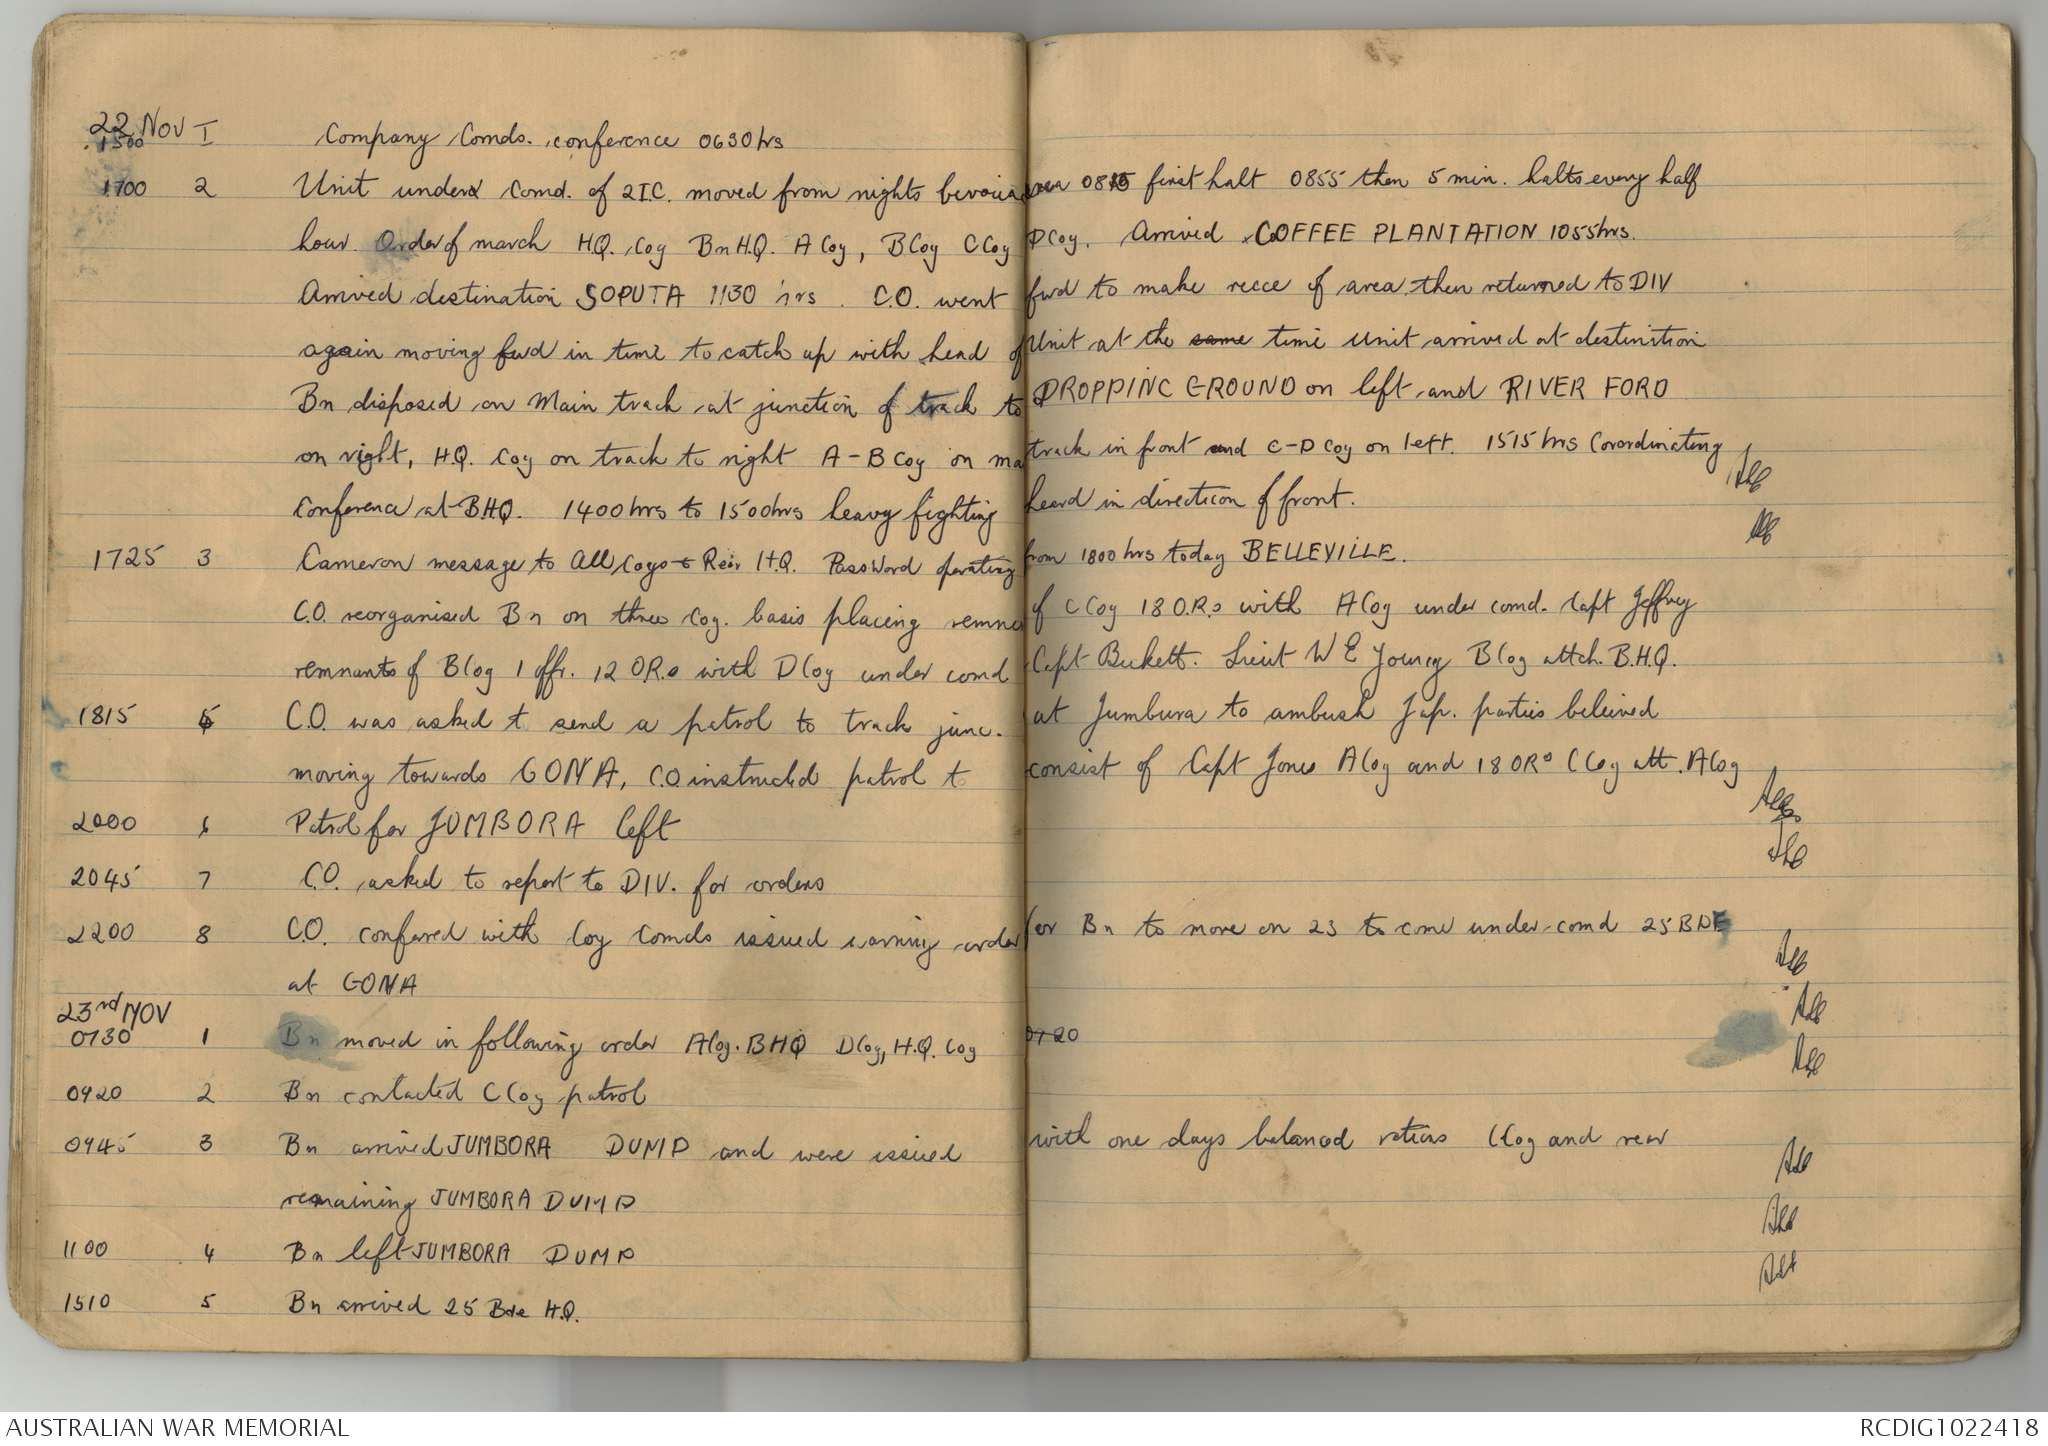 22 Nov
1500 I Company Comds. conference 0630 hrs
1700 2 Unit under Comd. of 2I.C. moved from nights bivouac area 0815 first halt 0855 then 5 min. halts every half
hour. Order of march H.Q. Coy Bn H.Q. A Coy, B Coy C Coy D Coy. Arrived COFFEE PLANTATION 1055 hrs.
Arrived destination SOPUTA 1130 hrs. C.O. went fwd to make recce of area then returned to DIV
again moving fwd in time to catch up with head of Unit at the same time Unit arrived at destinition
Bn disposed on Main track at junction of track to DROPPING GROUND on left and RIVER FORD
on right, H.Q. Coy on track to right A-B Coy on ma track in front and C-D Coy on left. 1515 hrs Coordinating
Conference at BHQ. 1400 hrs to 1500 hrs heavy fighting heard in direction of front.
1725 3 Cameron message to All Coys + Rear H.Q. PassWord operating from 1800 hrs today BELLEVILLE.
C.O. reorganised Bn on three Coy. basis placing remna of C Coy 18 O.R.s with A Coy under comd. Capt Jeffrey
remnants of B Coy 1 offr. 12 OR.s with D Coy under comd Capt Beckett. Lieut W E Young B Coy attch. B.H.Q.
1815 5 C.O. was asked t send a patrol to track junc. at Jumbura to ambush Jap. parties beleived
moving towards GONA, C.O instructed patrol t consist of Capt Jones A Coy and 18 ORs C Coy att. A Coy
2000 6 Patrol for JUMBORA left
2045 7 C.O. asked to report to DIV. for orders
2200 8 C.O. confered with Coy Comds issued warning order for Bn to move on 23 to come under comd 25 BDE
at GONA
23rd NOV
0730 1 Bn moved in following order A Coy. BHQ D Coy, H.Q. Coy 0920
0920 2 Bn contacted C Coy patrol
0945 3 Bn arrived JUMBORA DUMP and were issued with one days balanced rations C Coy and rear
remaining JUMBORA DUMP
1100 4 Bn left JUMBORA DUMP
1510 5 Bn arrived 25 Bde H.Q.
AUSTRALIAN WAR MEMORIAL
RCDIG1022418